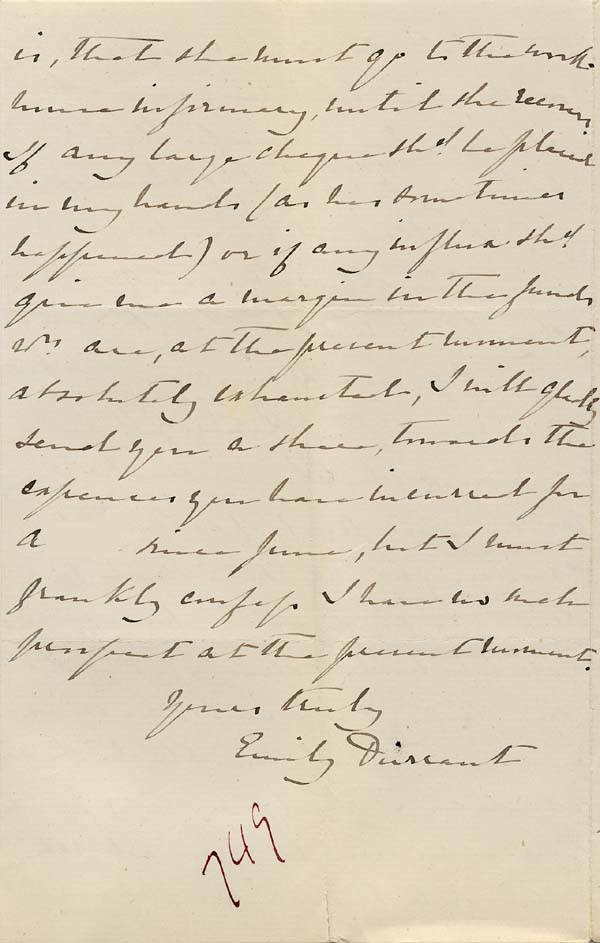 is, that she must go to the work-
house infirmary, until she recovers
If any large cheque shd. be placed
in my hands (as has sometimes
happened) or if any influx shd
give me a margin in the funds
wh: are, at the present moment,
absolutely exhausted, I will gladly
send you a share, towards the
expenses you have incurred for
A since June, but I must
frankly confess I have no such
prospect at the present moment.
Yours truly
Emily Durrant
749